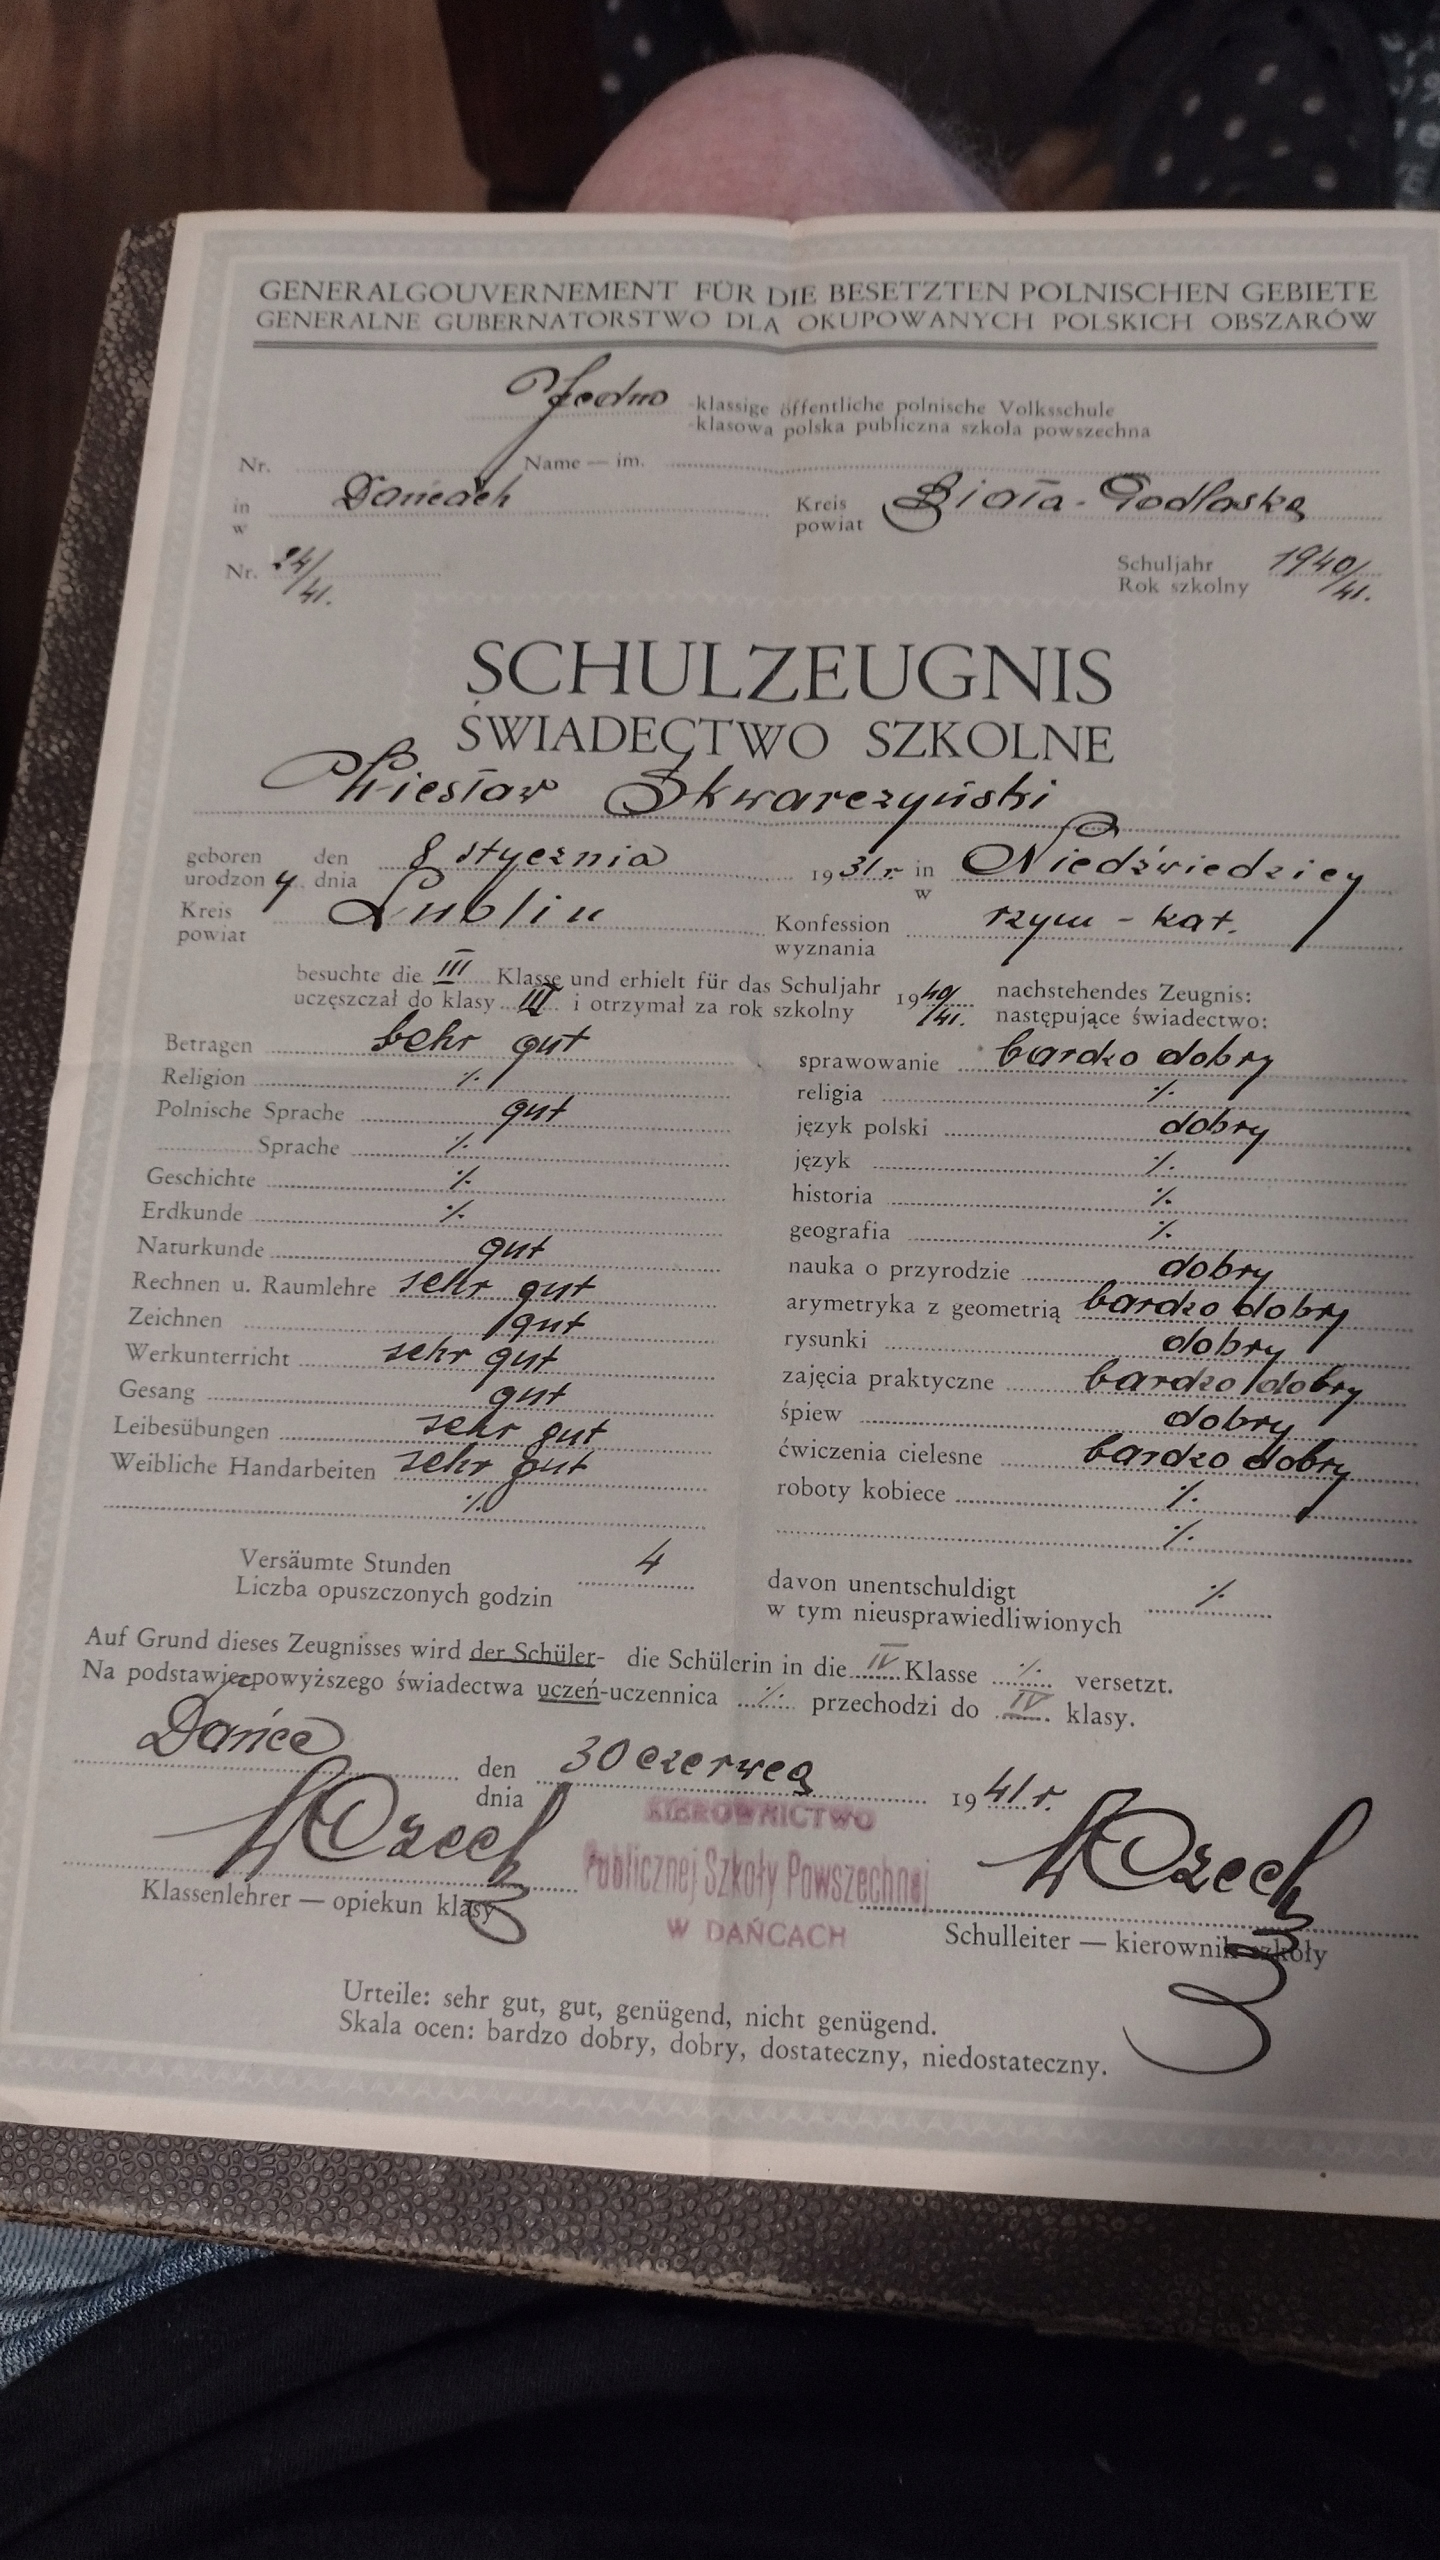 GENERALGOUVERNEMENT FÜR DIE BESETZTEN POLNISCHEN GEBIETE
GENERALNE GUBERNATORSTWO DLA OKUPOWANYCH POLSKICH OBSZARÓW
Jedno -klassige öffentliche polnische Volksschule
-klasowa polska publiczna szkoła powszechna
Nr. Name — im.
in Dańcach Kreis Biała-Podlaska
w powiat
Nr. 24/41. Schuljahr 1940/41.
Rok szkolny
SCHULZEUGNIS
ŚWIADECTWO SZKOLNE
Wiesław Skwarczyński
geboren den 8 stycznia 1931 r. in Niedźwiedziej
urodzony dnia w
Kreis Lublin Konfession rzym-kat.
powiat wyznania
besuchte die III Klasse und erhielt für das Schuljahr 1940/41. nachstehendes Zeugnis:
uczęszczał do klasy III i otrzymał za rok szkolny następujące świadectwo:
Betragen sehr gut sprawowanie bardzo dobry
Religion ./. religia ./.
Polnische Sprache gut język polski dobry
Sprache ./. język ./.
Geschichte ./. historia ./.
Erdkunde ./. geografia ./.
Naturkunde gut nauka o przyrodzie dobry
Rechnen u. Raumlehre sehr gut arymetryka z geometrią bardzo dobry
Zeichnen gut rysunki dobry
Werkunterricht sehr gut zajęcia praktyczne bardzo dobry
Gesang gut śpiew dobry
Leibesübungen sehr gut ćwiczenia cielesne bardzo dobry
Weibliche Handarbeiten sehr gut roboty kobiece ./.
./. ./.
Versäumte Stunden 4 davon unentschuldigt ./.
Liczba opuszczonych godzin w tym nieusprawiedliwionych
Auf Grund dieses Zeugnisses wird der Schüler- die Schülerin in die IV Klasse ./. versetzt.
Na podstawie powyższego świadectwa uczeń-uczennica ./. przechodzi do IV klasy.
Dańce den 30 czerwca 1941 r.
dnia
KIEROWNICTWO
Publicznej Szkoły Powszechnej
W DAŃCACH
Klassenlehrer — opiekun klasy Schulleiter — kierownik szkoły
Urteile: sehr gut, gut, genügend, nicht genügend.
Skala ocen: bardzo dobry, dobry, dostateczny, niedostateczny.